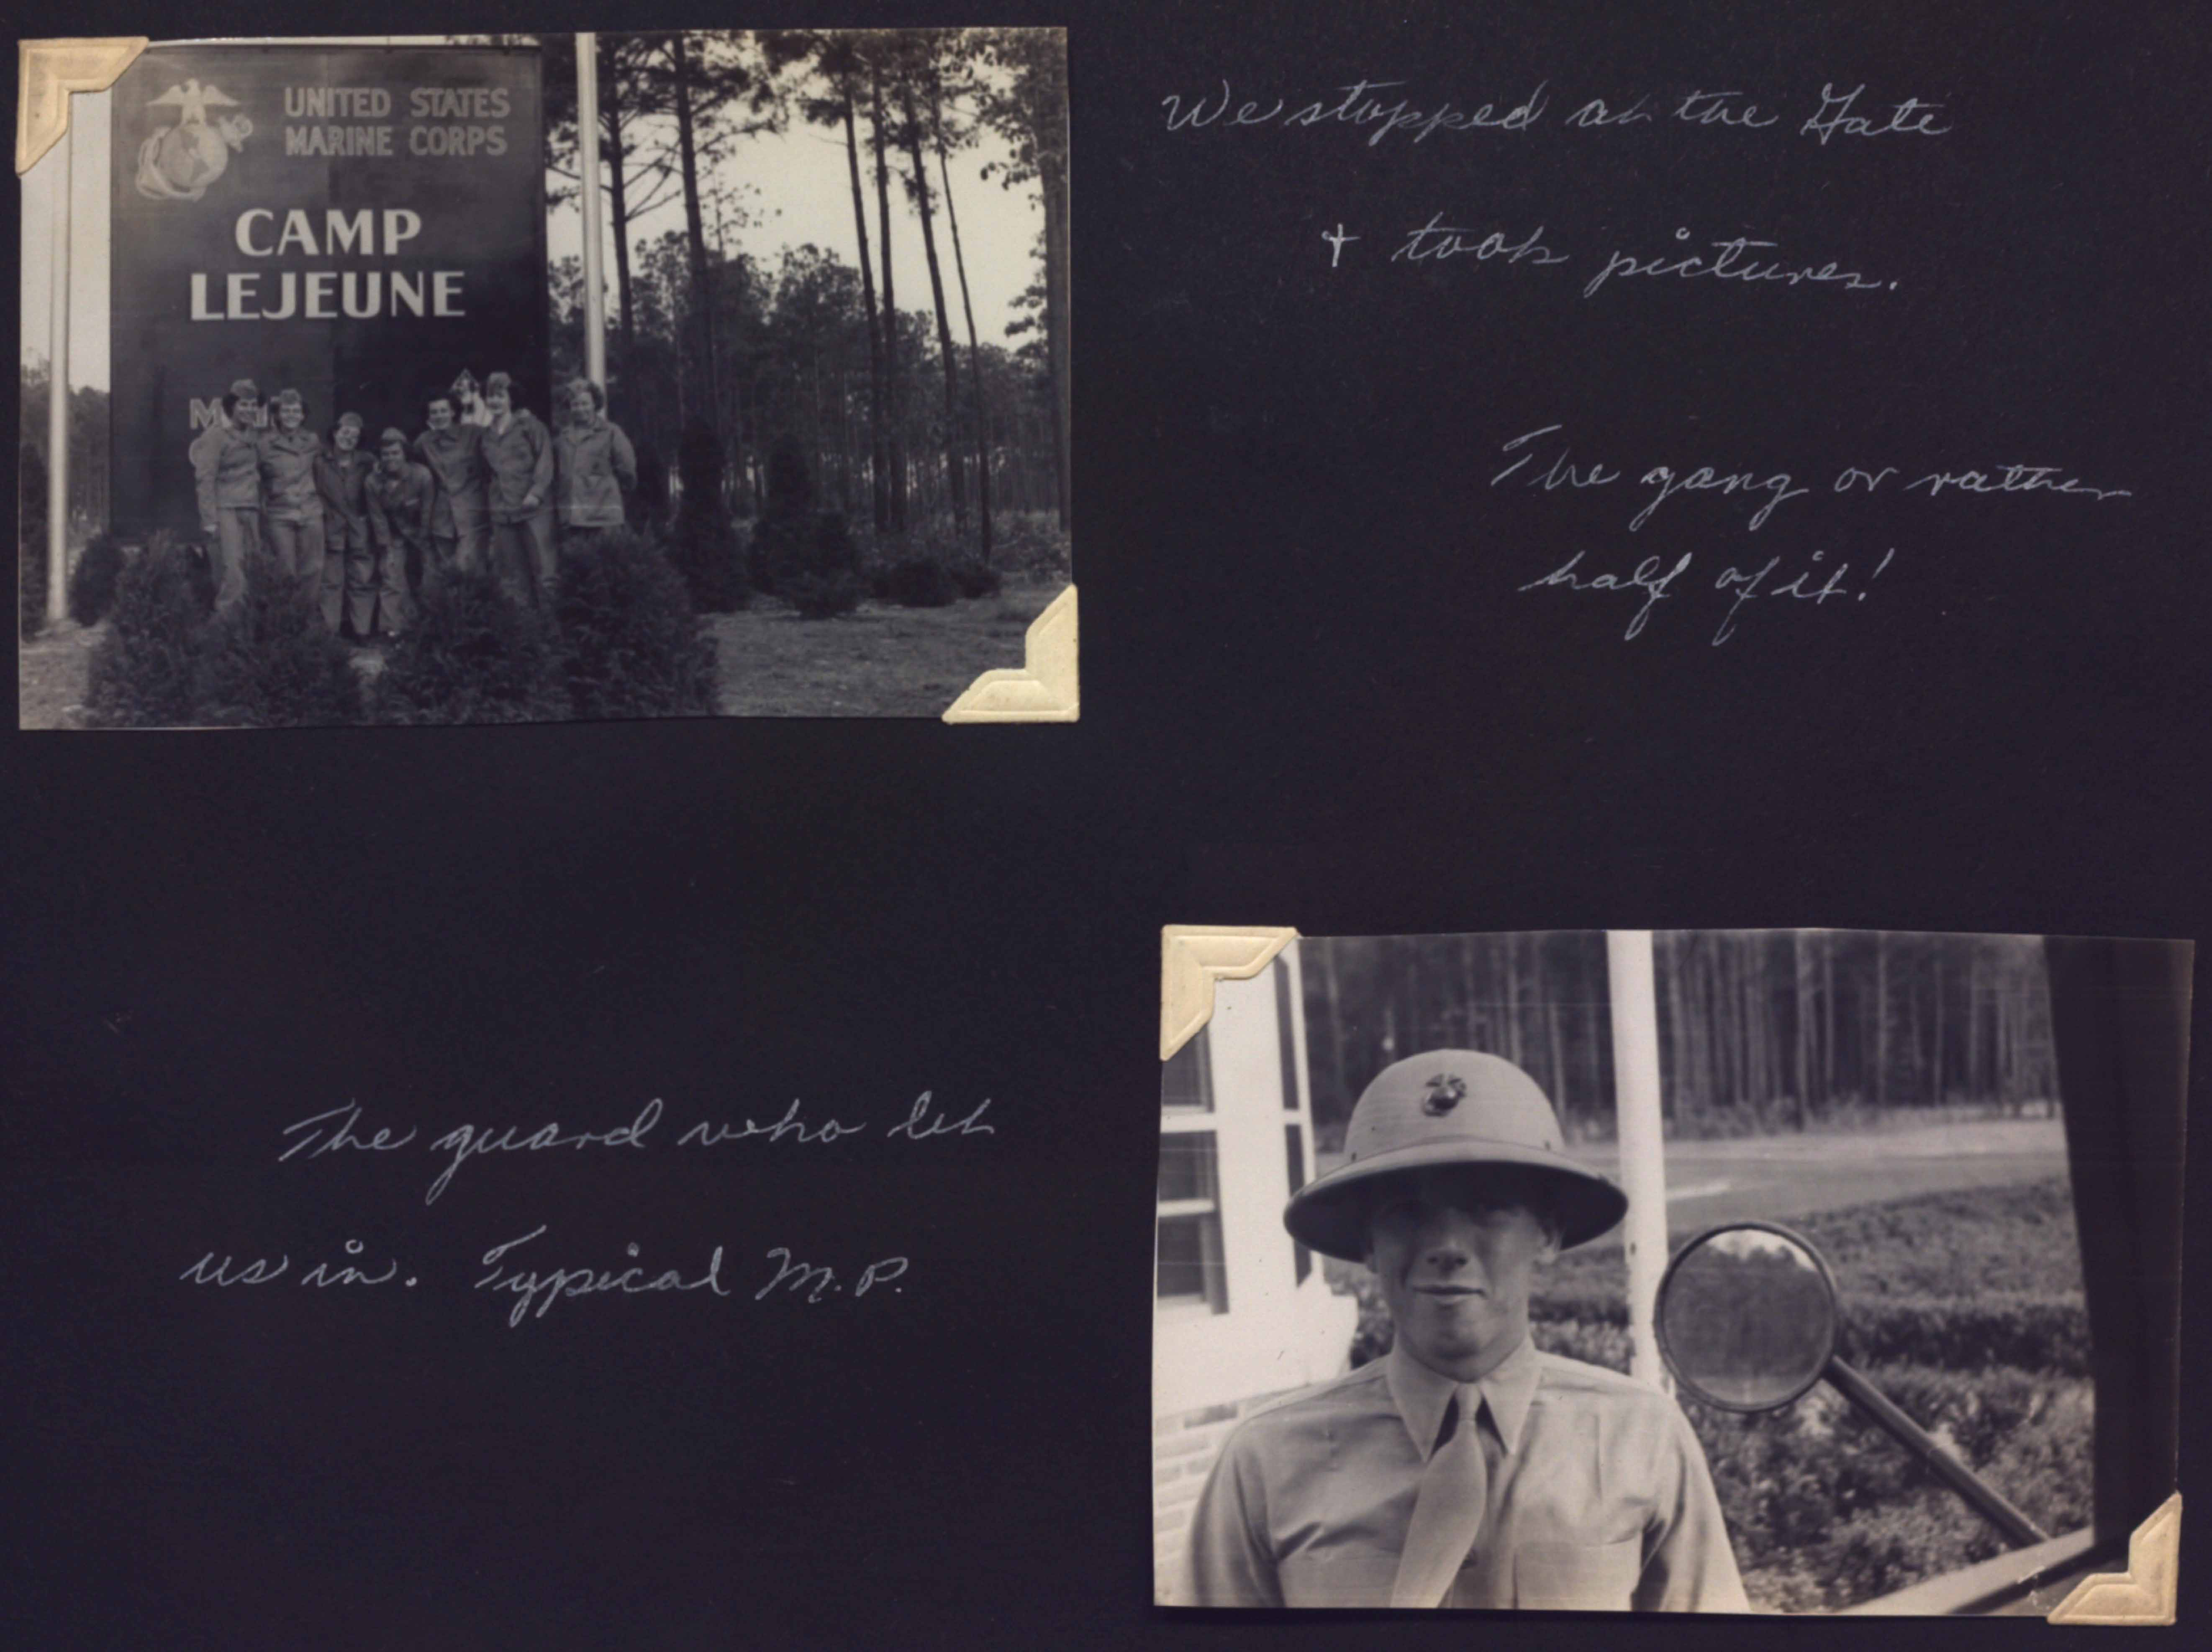 UNITED STATES
MARINE CORPS
CAMP
LEJEUNE
We stopped at the Gate
+ took pictures.
The gang or rather
half of it!
The guard who let
us in. Typical M.P.